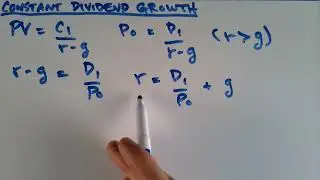 CONSTANT DIVIDEND GROWTH
PV = C₁/(r-g)   P₀ = D₁/(r-g)   (r>g)
r-g = D₁/P₀   r = D₁/P₀ + g